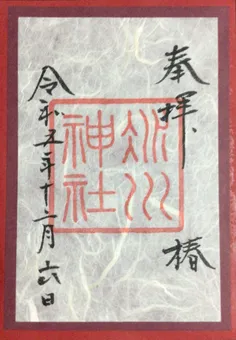 奉拝、
椿
川
神社
令和五年十二月六日